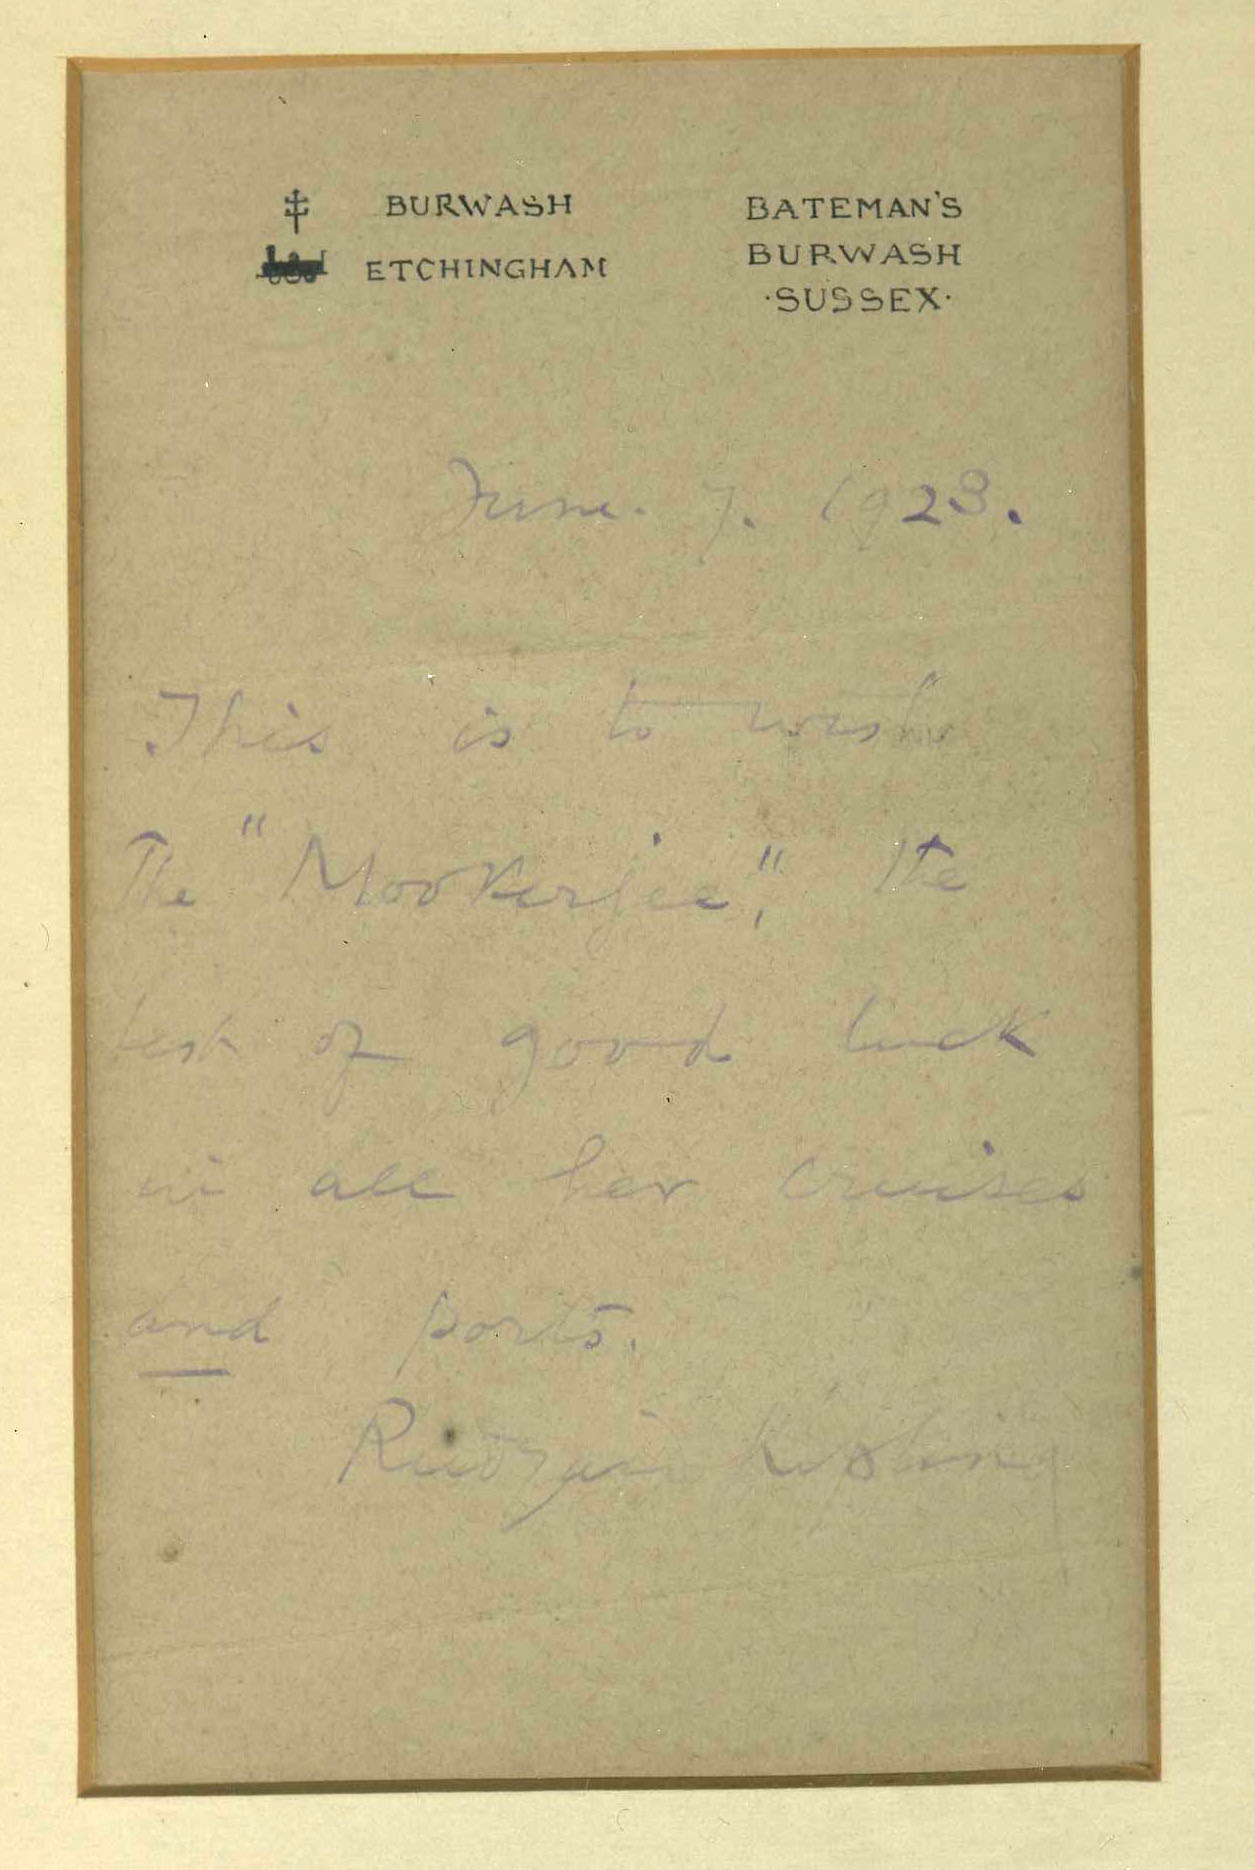 BURWASH
ETCHINGHAM
BATEMAN'S
BURWASH
·SUSSEX·
June. 7. 1923.
This is to wish
The "Mookerjee", the
best of good luck
in all her cruises
and ports.
Rudyard Kipling